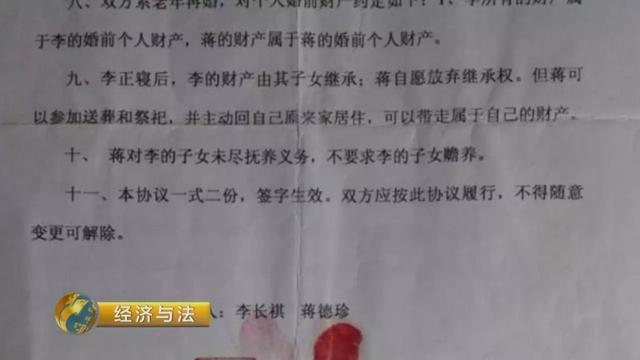 八、双方系老年再婚，对个人婚前财产约定如下：1、李所有的财产属
于李的婚前个人财产，蒋的财产属于蒋的婚前个人财产。
九、李正寝后，李的财产由其子女继承；蒋自愿放弃继承权。但蒋可
以参加送葬和祭祀，并主动回自己原来家居住，可以带走属于自己的财产。
十、 蒋对李的子女未尽抚养义务，不要求李的子女赡养。
十一、本协议一式二份，签字生效。双方应按此协议履行，不得随意
变更可解除。
人：李长祺 蒋德珍
经济与法